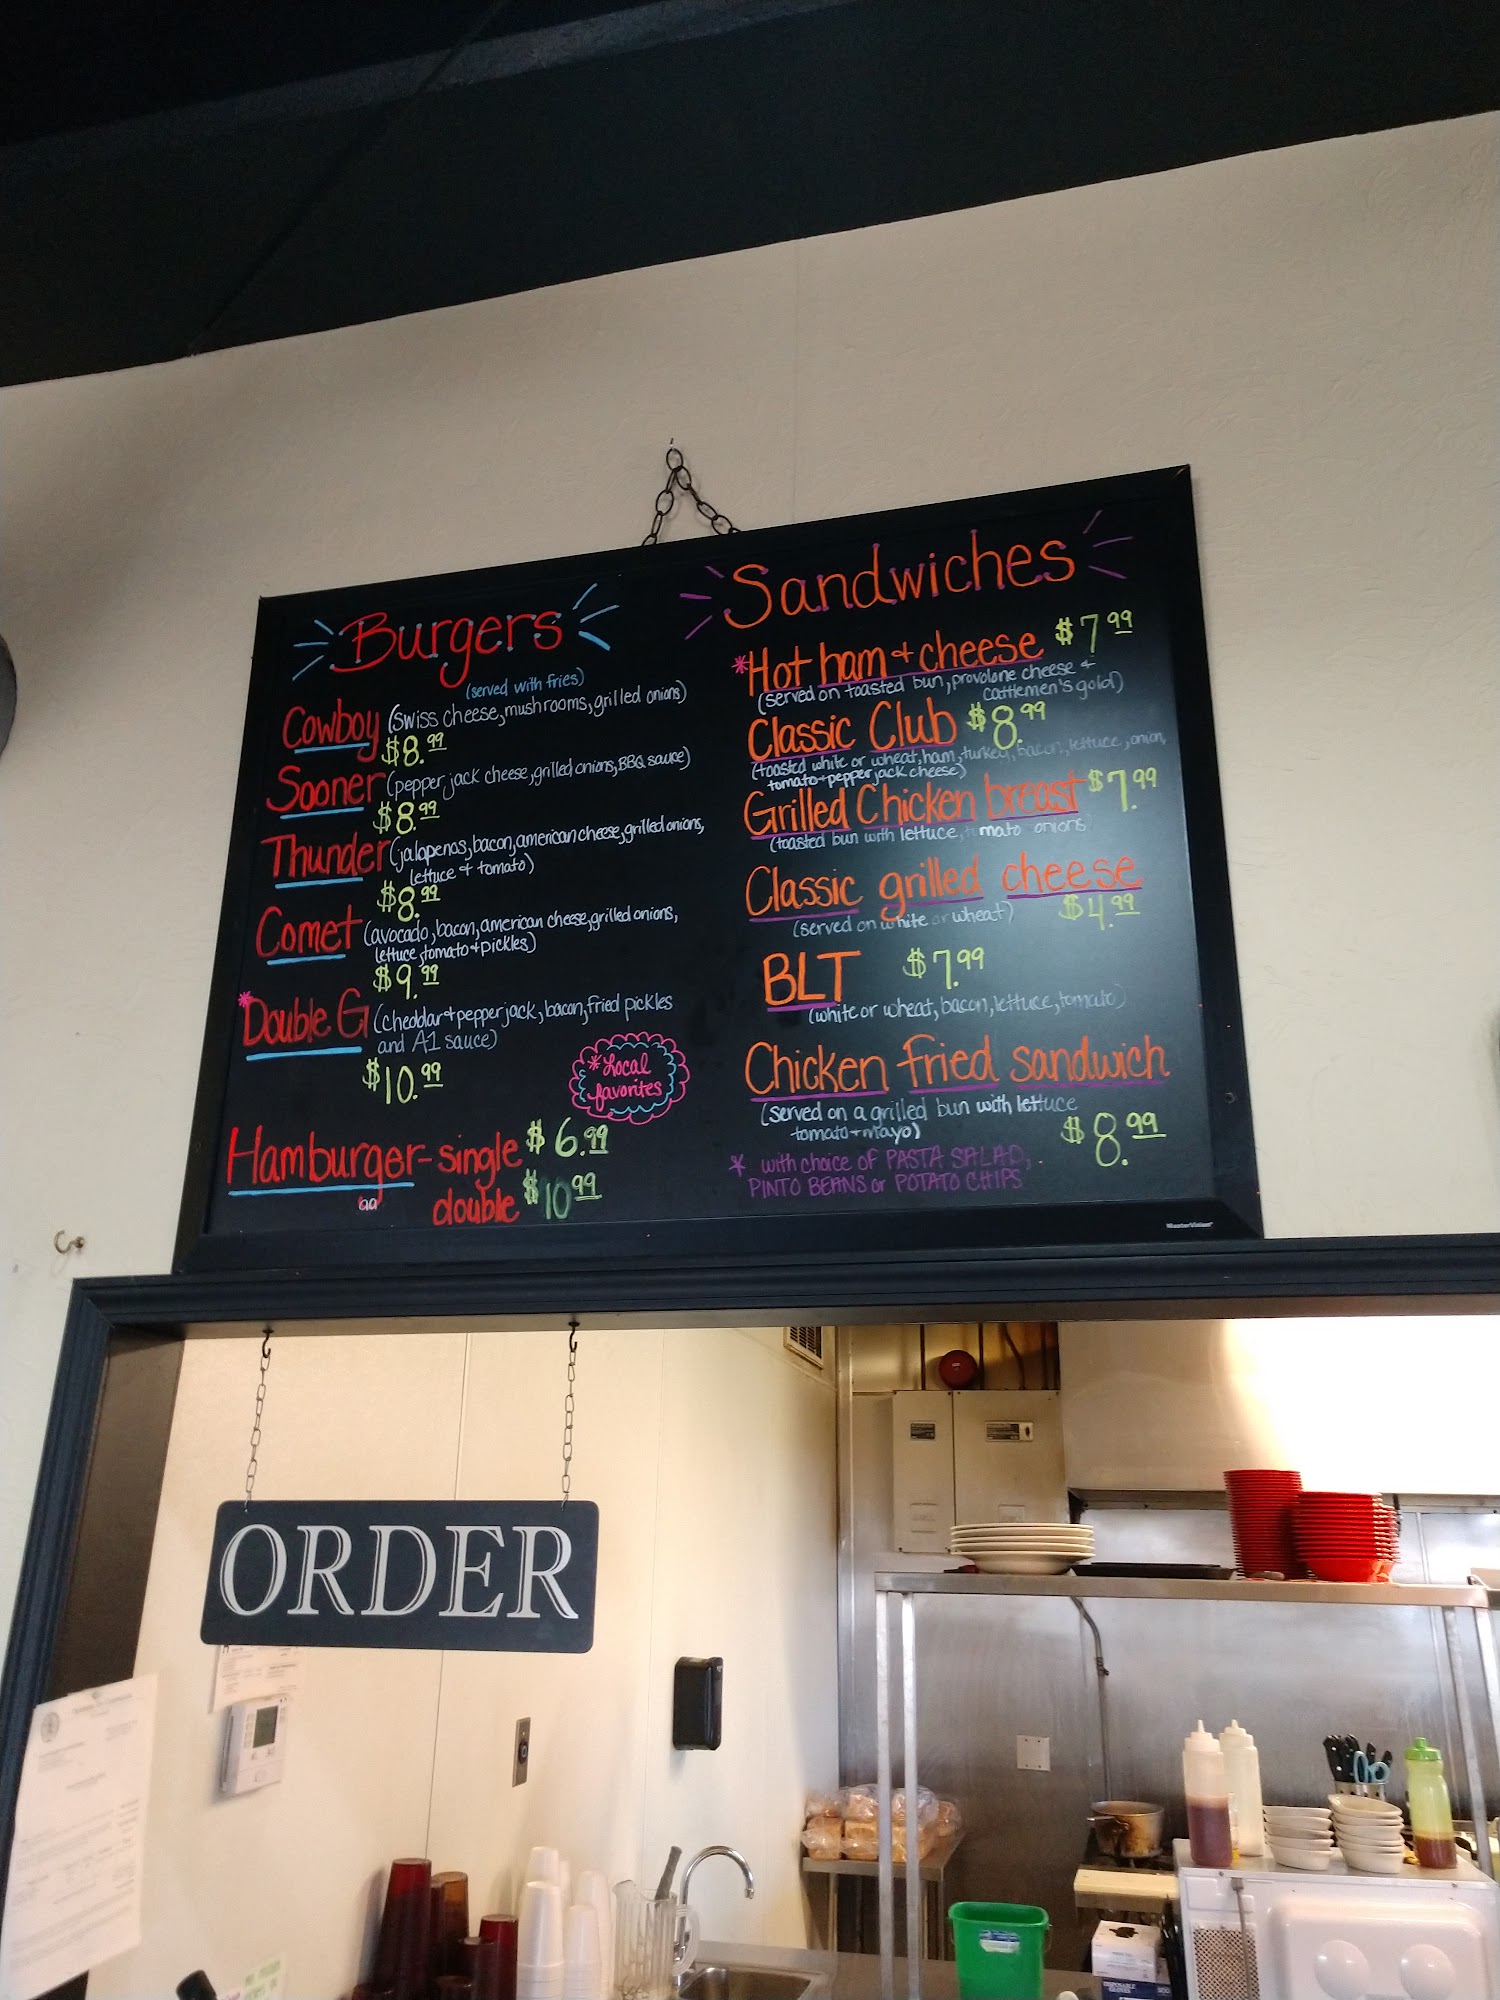 Burgers
(served with fries)
Cowboy (swiss cheese, mushrooms, grilled onions)
$8.99
Sooner (pepper jack cheese, grilled onions, BBQ sauce)
$8.99
Thunder (jalapenos, bacon, american cheese, grilled onions,
lettuce + tomato)
$8.99
Comet (avocado, bacon, american cheese, grilled onions,
lettuce, tomato + pickles)
$9.99
*Double G (cheddar + pepper jack, bacon, fried pickles
and A1 sauce)
$10.99
*Local
favorites
Hamburger - single $6.99
double $10.99
Sandwiches
*Hot ham + cheese $7.99
(served on toasted bun, provolone cheese +
cattlemen's gold)
Classic Club $8.99
(toasted white or wheat, ham, turkey, bacon, lettuce, onion,
tomato + pepper jack cheese)
Grilled Chicken breast $7.99
(toasted bun with lettuce, tomato onions)
Classic grilled cheese
(served on white or wheat) $4.99
BLT $7.99
(white or wheat, bacon, lettuce, tomato)
Chicken fried sandwich
(served on a grilled bun with lettuce
tomato + mayo) $8.99
* with choice of PASTA SALAD,
PINTO BEANS or POTATO CHIPS
MasterVision
ORDER